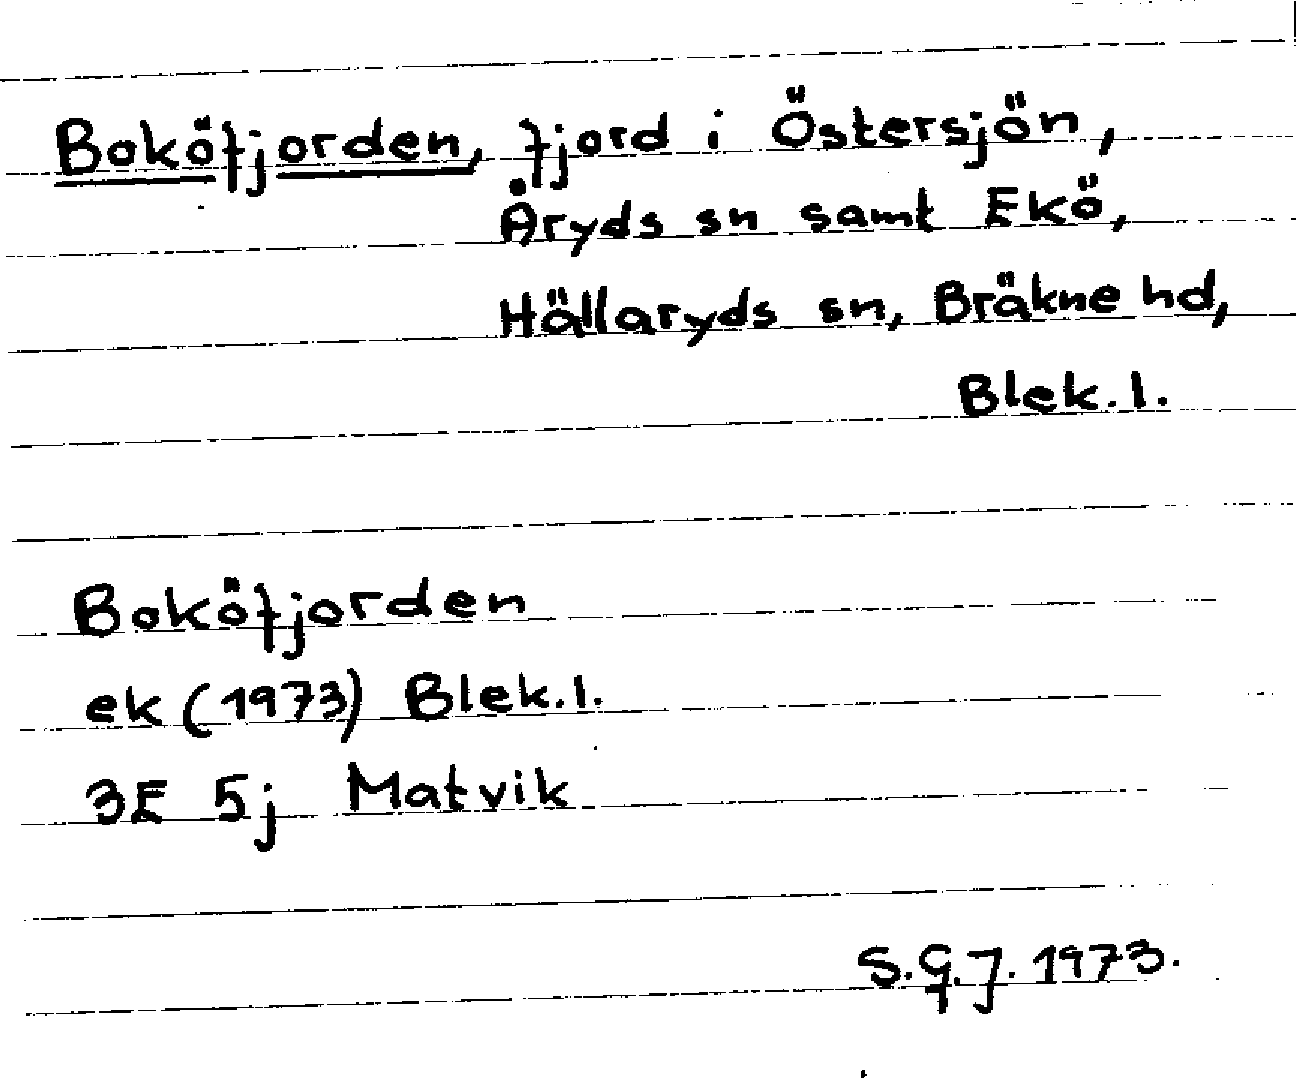 Boköfjorden, fjord i Östersjön,
Åryds sn samt Ekö,
Hällaryds sn, Bräkne hd,
Blek. l.
Boköfjorden
ek (1973) Blek. l.
3E 5j Matvik
S.G.J. 1973.